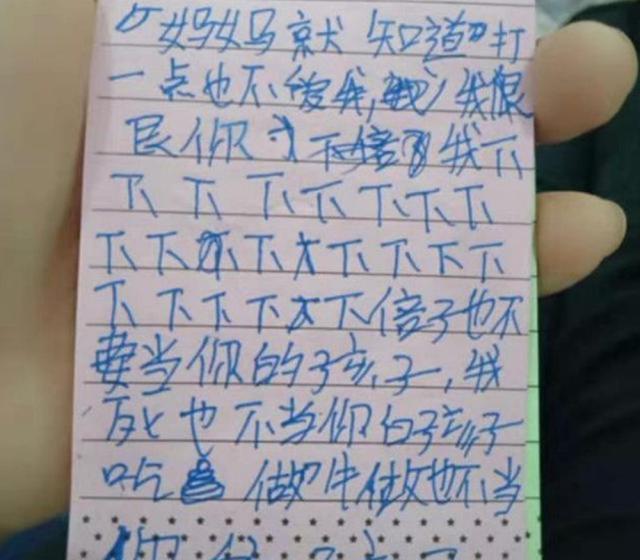 妈妈就知道打
一点也不爱我,我很
你我下
下下下下下下下
下下下下下下下
下下下下下倍子也不
要当你的孩子,我
死也不当你的孩子
吃做牛做也不当